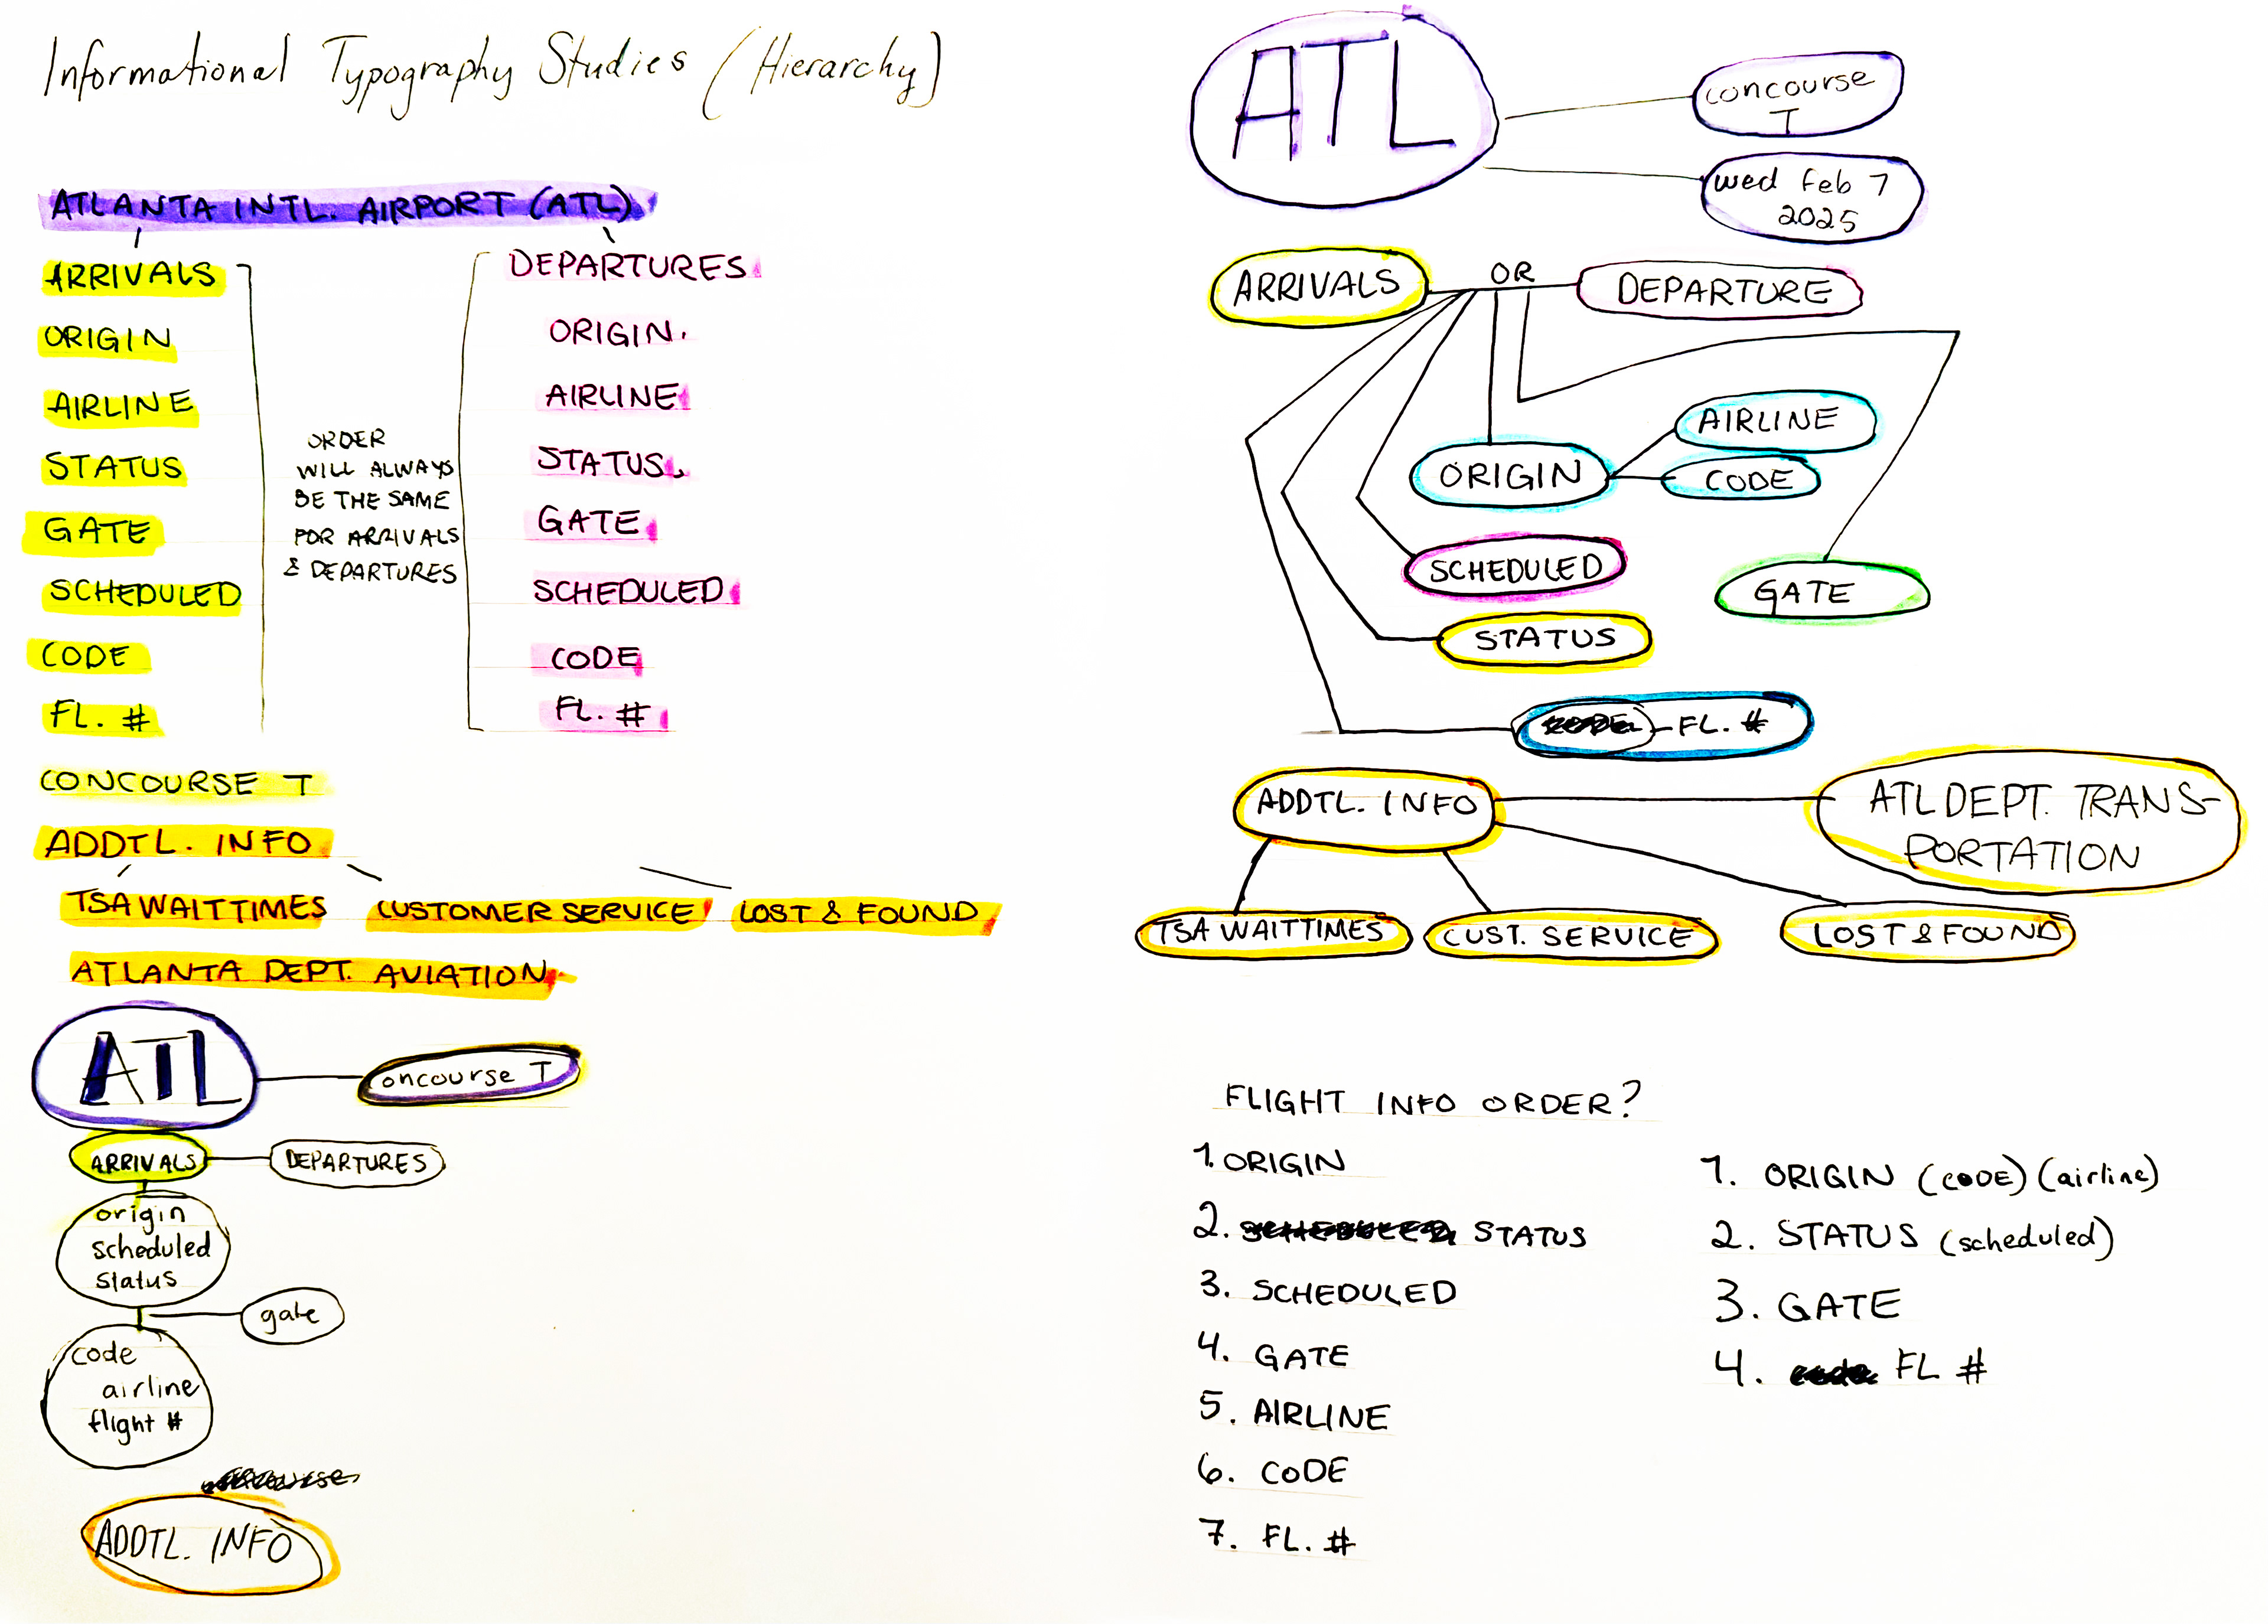 Informational Typography Studies (Hierarchy)
ATLANTA INTL. AIRPORT (ATL)
ARRIVALS
ORIGIN
AIRLINE
STATUS
GATE
SCHEDULED
CODE
FL. #
ORDER
WILL ALWAYS
BE THE SAME
FOR ARRIVALS
& DEPARTURES
DEPARTURES
ORIGIN.
AIRLINE
STATUS.
GATE
SCHEDULED
CODE
FL. #
CONCOURSE T
ADDTL. INFO
TSA WAITTIMES CUSTOMER SERVICE LOST & FOUND
ATLANTA DEPT. AVIATION
ATL
concourse T
ARRIVALS DEPARTURES
origin
scheduled
status
gate
code
airline
flight #
ADDTL. INFO
ATL
concourse
T
wed Feb 7
2025
ARRIVALS OR DEPARTURE
AIRLINE
ORIGIN CODE
SCHEDULED
GATE
STATUS
FL. #
ADDTL. INFO
ATL DEPT. TRANS-
PORTATION
TSA WAITTIMES CUST. SERVICE LOST & FOUND
FLIGHT INFO ORDER?
1. ORIGIN
2. SCHEDULED STATUS
3. SCHEDULED
4. GATE
5. AIRLINE
6. CODE
7. FL. #
1. ORIGIN (CODE) (airline)
2. STATUS (scheduled)
3. GATE
4. code FL #